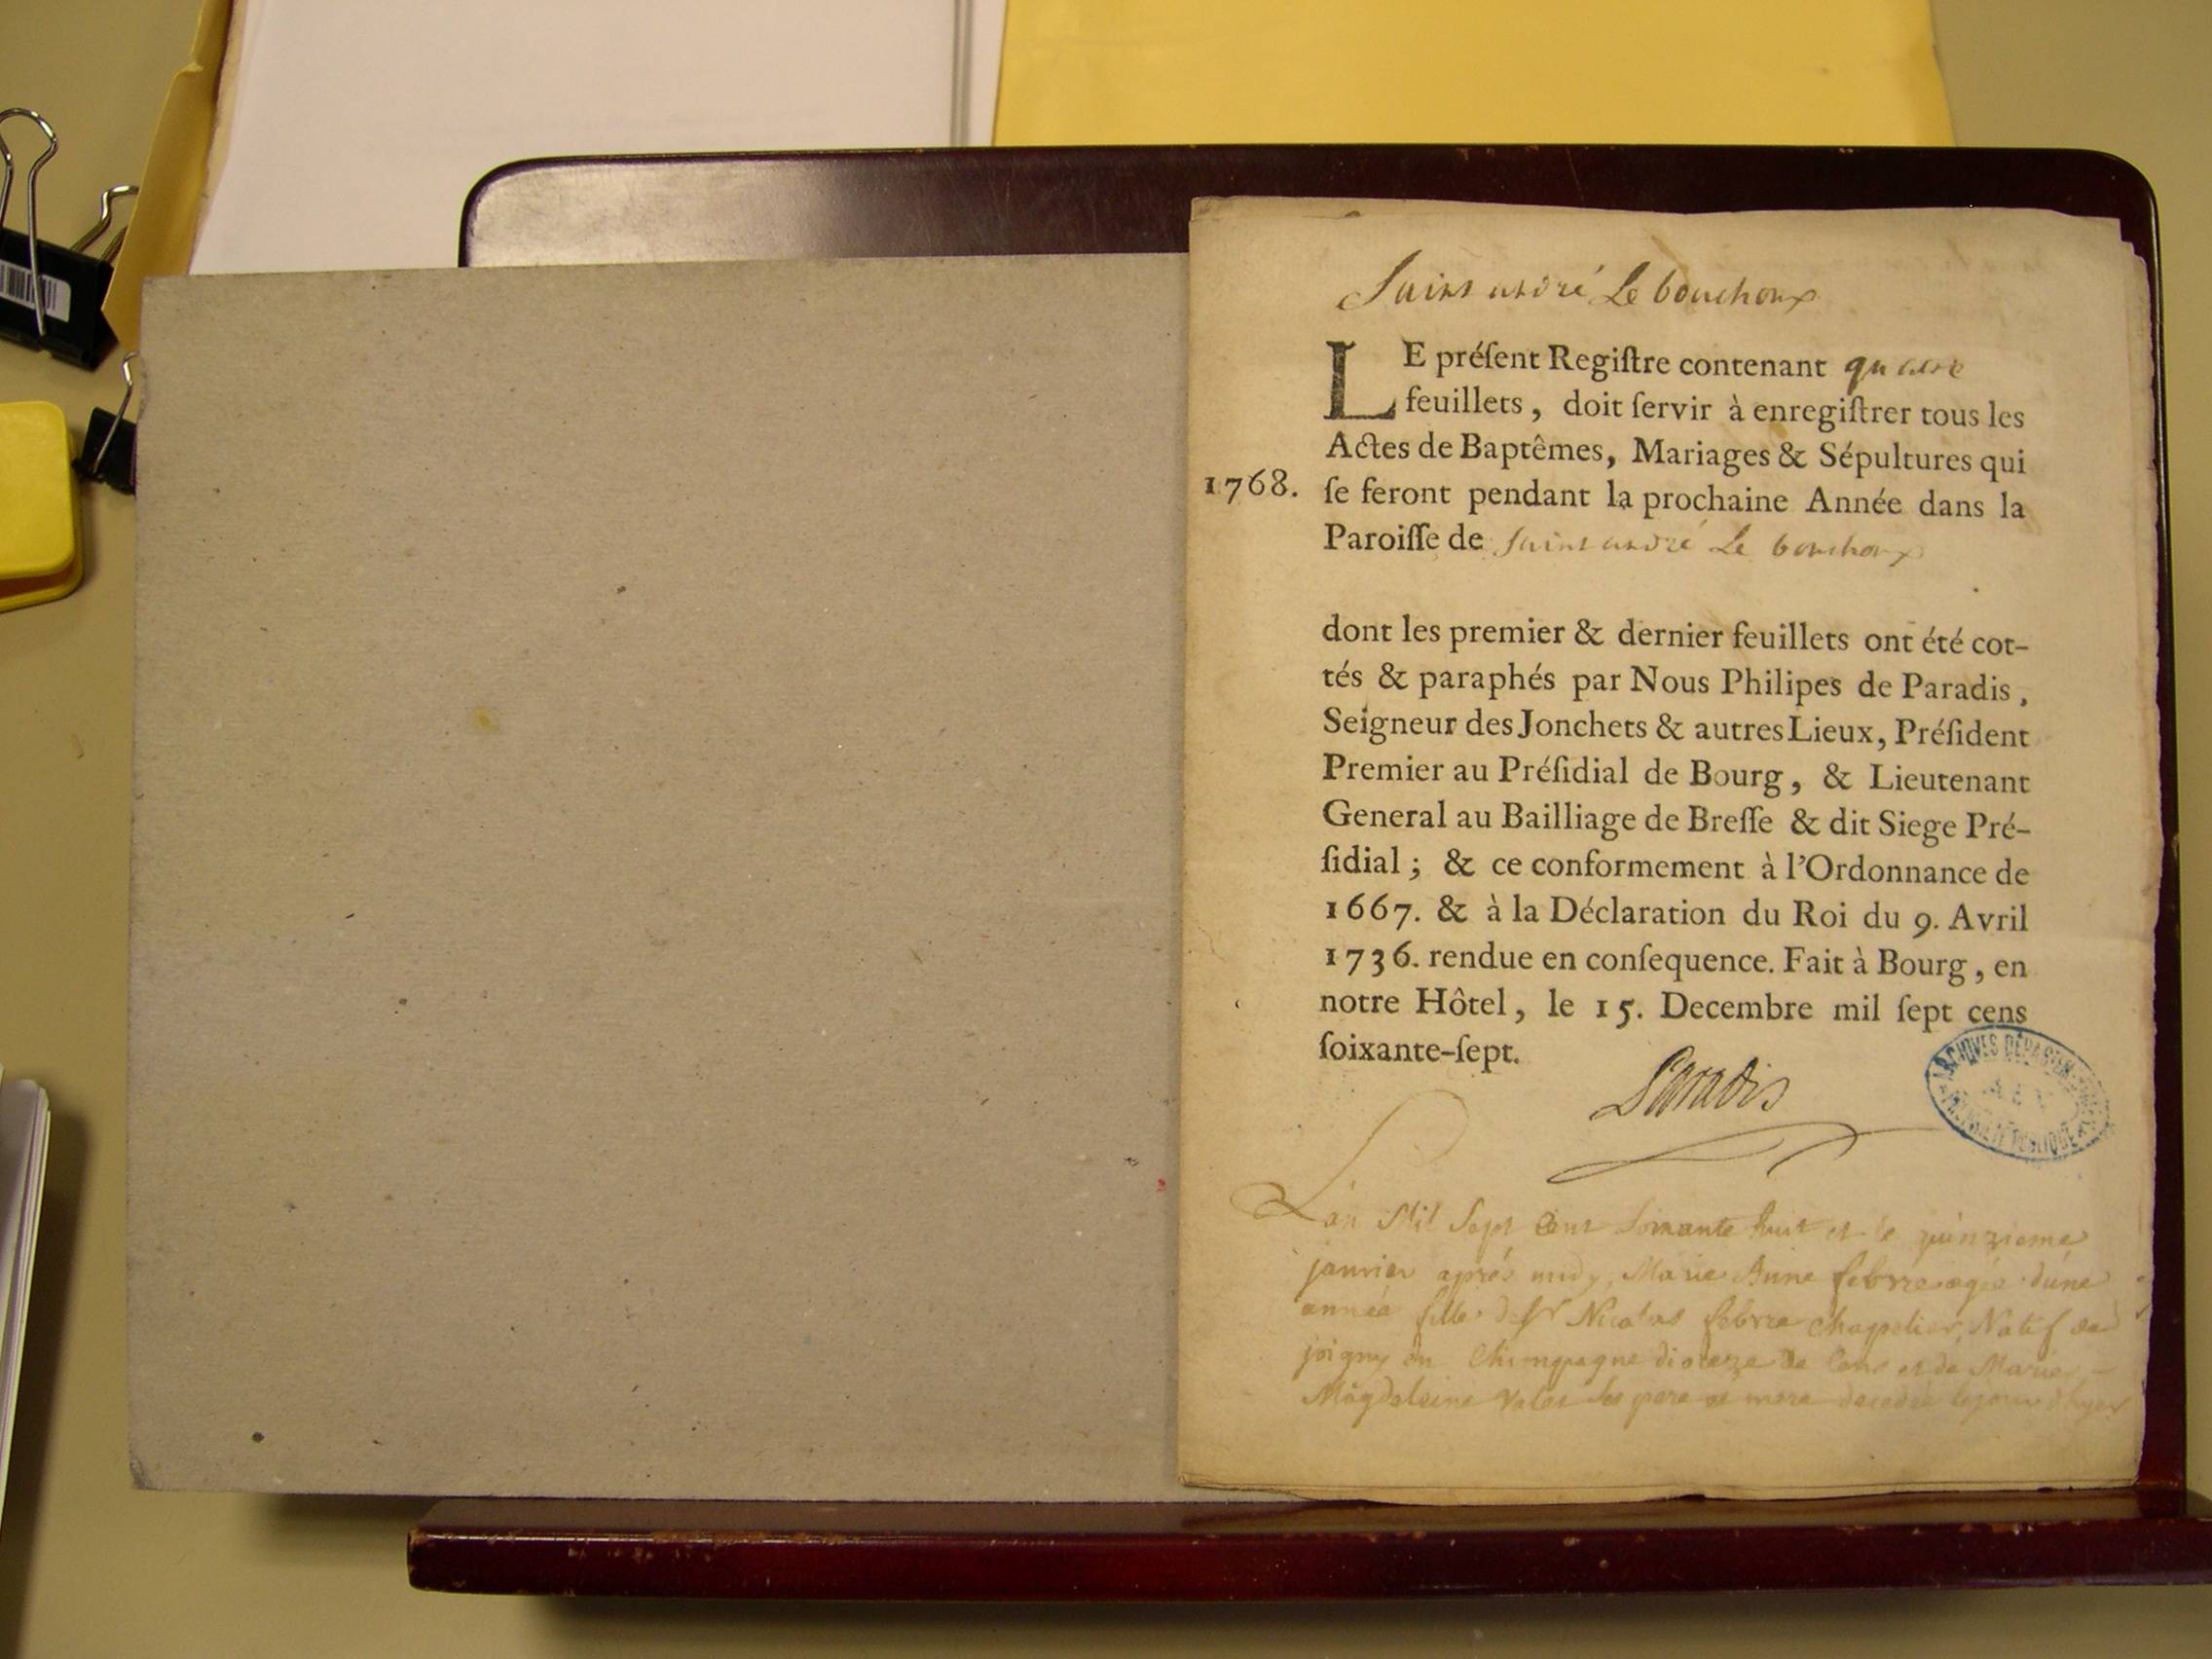 Saint andré Le bouchoux
LE préſent Regiſtre contenant quatre
feuillets, doit ſervir à enregiſtrer tous les
Actes de Baptêmes, Mariages & Sépultures qui
1768. ſe feront pendant la prochaine Année dans la
Paroiſſe de Saint andré Le bouchoux
dont les premier & dernier feuillets ont été cot-
tés & paraphés par Nous Philipes de Paradis,
Seigneur des Jonchets & autres Lieux, Préſident
Premier au Préſidial de Bourg, & Lieutenant
General au Bailliage de Breſſe & dit Siege Pré-
ſidial; & ce conformement à l'Ordonnance de
1667. & à la Déclaration du Roi du 9. Avril
1736. rendue en conſequence. Fait à Bourg, en
notre Hôtel, le 15. Decembre mil ſept cens
ſoixante-ſept.
Paradis
ARCHIVES DÉPARTEM
PUBLIQUE
L'an Mil Sept Cent Soixante huit et le quinzieme
janvier aprés midy, Marie Anne febvre agée d'une
année fille de Sr Nicolas febvre Chapelier, Natif de
joigny en Champagne dioceze de Sens et de Marie
Magdeleine Valet ses pere et mere decedée le jour d'hyer